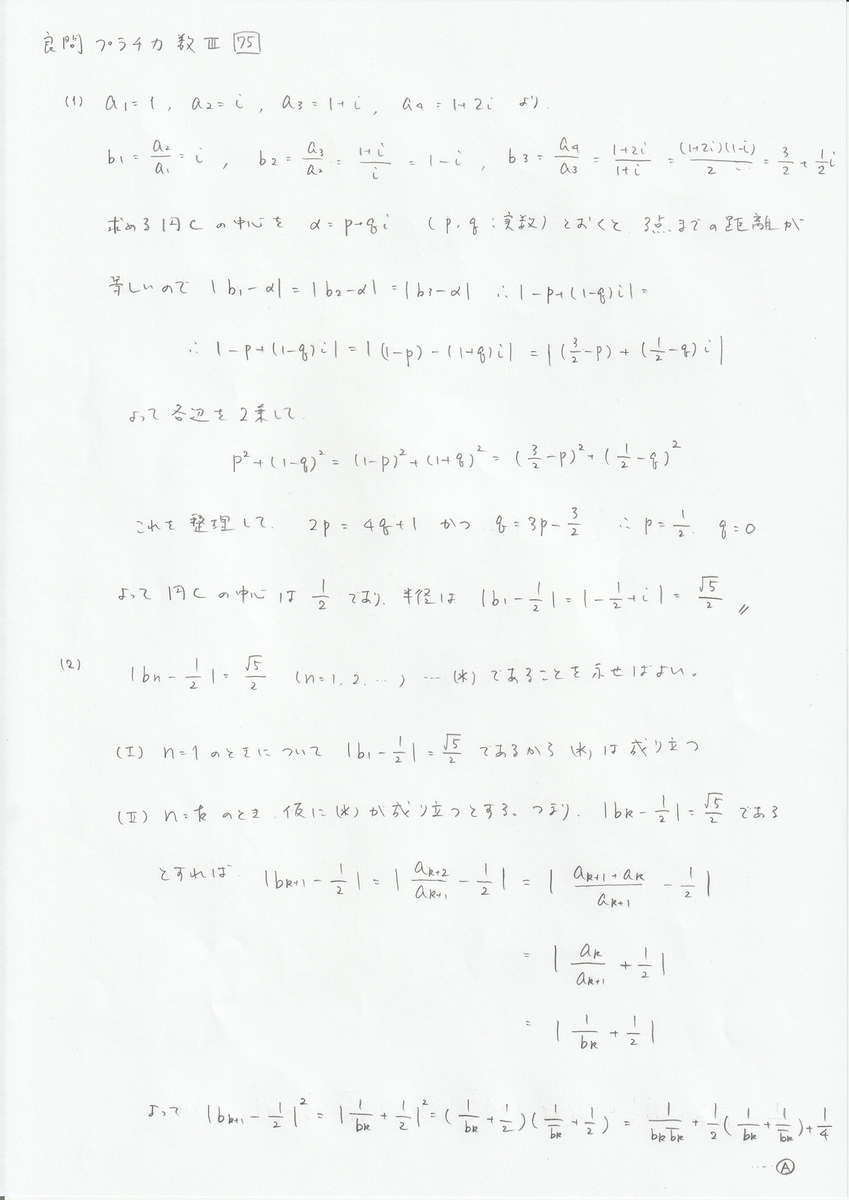 良問プラチカ数Ⅲ 75
(1) a₁=1, a₂=i, a₃=1+i, a₄=1+2i より
b₁=a₂/a₁=i, b₂=a₃/a₂=(1+i)/i=1-i, b₃=a₄/a₃=(1+2i)/(1+i)=(1+2i)(1-i)/2=3/2+1/2i
求める円Cの中心を α=p+qi (p,q:実数)とおくと、3点までの距離が
等しいので |b₁-α|=|b₂-α|=|b₃-α| ∴|-p+(1-q)i|=
∴|-p+(1-q)i|=|(1-p)-(1+q)i|=|(3/2-p)+(1/2-q)i|
よって各辺を2乗して、
p²+(1-q)²=(1-p)²+(1+q)²=(3/2-p)²+(1/2-q)²
これを整理して、 2p=4q+1 かつ q=3p-3/2 ∴p=1/2, q=0
よって円Cの中心は 1/2 であり、半径は |b₁-1/2|=|-1/2+i|=√5/2 〃
(2) |bn-1/2|=√5/2 (n=1,2,…) …(*) であることを示せばよい。
(Ⅰ) n=1のときについて |b₁-1/2|=√5/2 であるから(*)は成り立つ
(Ⅱ) n=kのとき、仮に(*)が成り立つとする、つまり、|bk-1/2|=√5/2 である
とすれば |bk+1-1/2|=|ak+2/ak+1-1/2|=|(ak+1+ak)/ak+1-1/2|
=|ak/ak+1+1/2|
=|1/bk+1/2|
よって |bk+1-1/2|²=|1/bk+1/2|²=(1/bk+1/2)(1/b̅k+1/2)=1/(bk b̅k)+1/2(1/bk+1/b̅k)+1/4
…Ⓐ